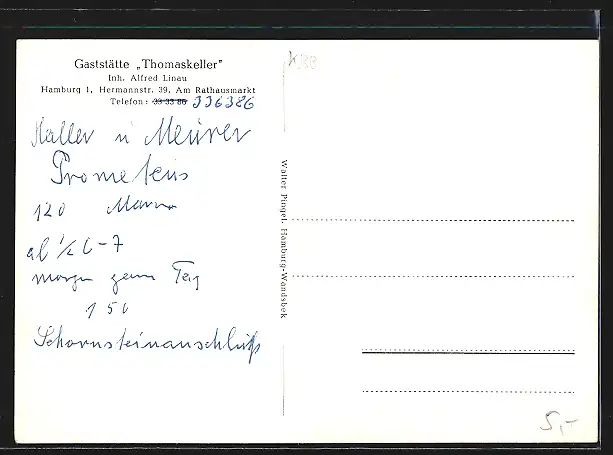 Gaststätte „Thomaskeller"
Inh. Alfred Linau
Hamburg 1, Hermannstr. 39, Am Rathausmarkt
Telefon: 33 33 86 336386
Haller u Meurer
Prometeus
120 Mann
ab ½ 6 - 7
morgen ganzen Tag
150
Schornsteinanschluß
Walter Pingel, Hamburg-Wandsbek
5,-